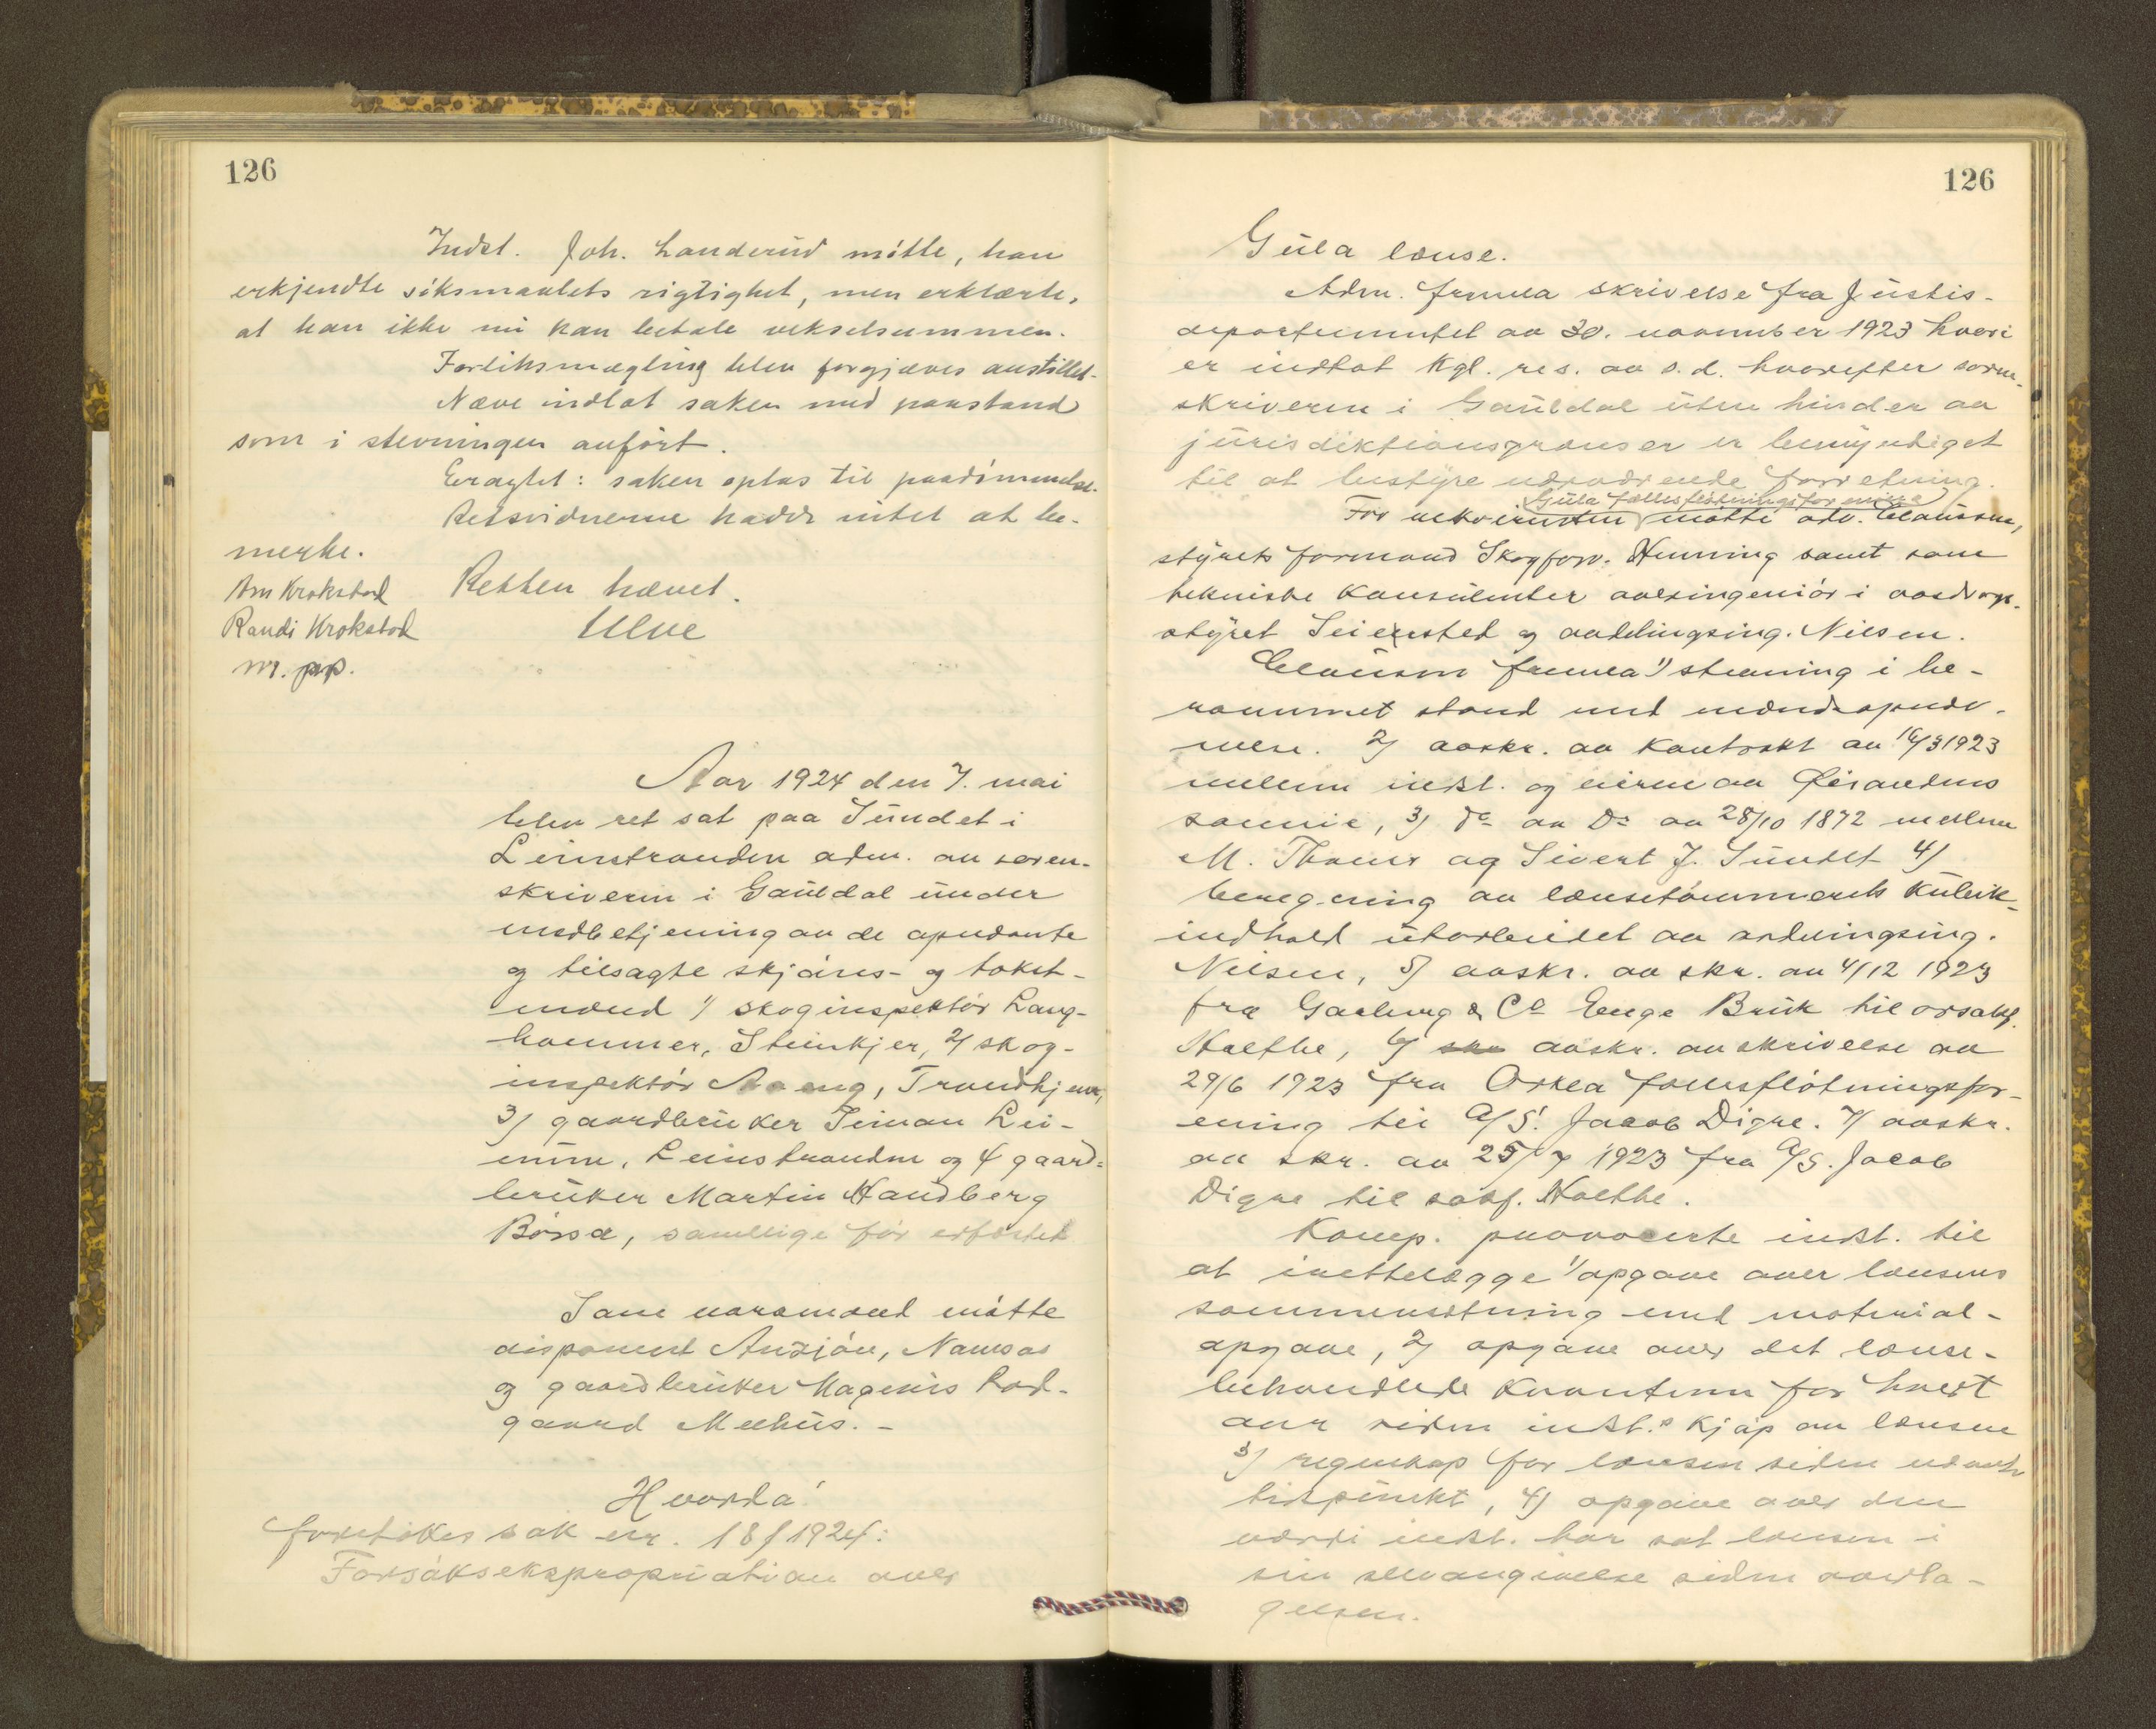 126
Indst. Joh. Landerud møtte, han
erkjendte søksmaalets rigtighet, men erklærte,
at han ikke nu kan betale vekselsummen.
Forliksmægling blev forgjæves anstillet.
Næve indlot saken med paastand
som i stevningen anført.
Eragtet: saken optas til paadømmelse.
Retsvidnerne hadde intet at be-
merke.
Arn Krokstad
Randi Krokstad
m. p.p.
Retten hævet.
Ulve
Aar 1924 den 7. mai
blev ret sat paa Sundet i
Leinstranden adm. av soren-
skriveren i Gauldal under
medbetjening av de opnævnte
og tilsagte skjøns- og takst-
mænd 1/ skoginspektør Lang-
hammer, Steinkjer, 2/ skog-
inspektør Aaeng, Trondhjem,
3/ gaardbruker Simon Lei-
, Leinstranden og 4 gaard-
bruker Martin Handberg
Børsa, samtlige før edfæstet
Som varamænd møtte
disponent , Namsos
og gaardbruker Magnus Lod-
gaard Melhus. -
Hvorda!
foretokes sak nr. 18/1924:
Forsøksekspropriation over
126
Gula lænse.
Adm. fremla skrivelse fra Justis-
departementet av 30. november 1923 hvori
er indtat kgl. res. av s.d. hvorefter soren-
skriveren i Gauldal uten hinder av
jurisdiktionsgrænser er bemyndiget
til at bestyre nærværende forretning.
Gula fællesfløtningsforening
For rekvirenten møtte adv. Clausen,
styrets formand Skogforv. Henning samt som
tekniske konsulenter overingeniør i vasdrags-
styret Seiersted og avdelingsing. Nilsen.
Clausen fremla 1/ stevning i be-
rammet stand med mændsopnæv-
nelse. 2/ avskr. av kontrakt av 16/3 1923
mellem indst. og eierne av Øisandens
sameie, 3/ Do av Do av 28/10 1872 mellem
M. Thams og Sivert J. Sundet 4/
beregning av lænsetømmerets kubik-
indhold utarbeidet av avdelingsing.
Nilsen, 5/ avskr. av skr. av 4/12 1923
fra Gaarberg & Co Enge Bruk til orsakf.
Halthe, 6/ skr avskr. av skrivelse av
29/6 1923 fra Orkla fællesfløtningsfor-
ening til A/S. Jacob Digre. 7/ avskr.
av skr. av 25/7 1923 fra A/S. Jacob
Digre til sakf. Halthe.
Komp. provocerte indst. til
at irettelægge 1/ opgave over lænsens
sammensætning med material-
opgave, 2/ opgave over det lænse-
behandlede kvantum for hvert
aar siden indst.s kjøp av lænsen
3/ regnskap for lænsen siden nævnte
tidspunkt, 4/ opgave over den
værdi indst. har sat lænsen i
sin selvangivelse siden overta-
gelsen.